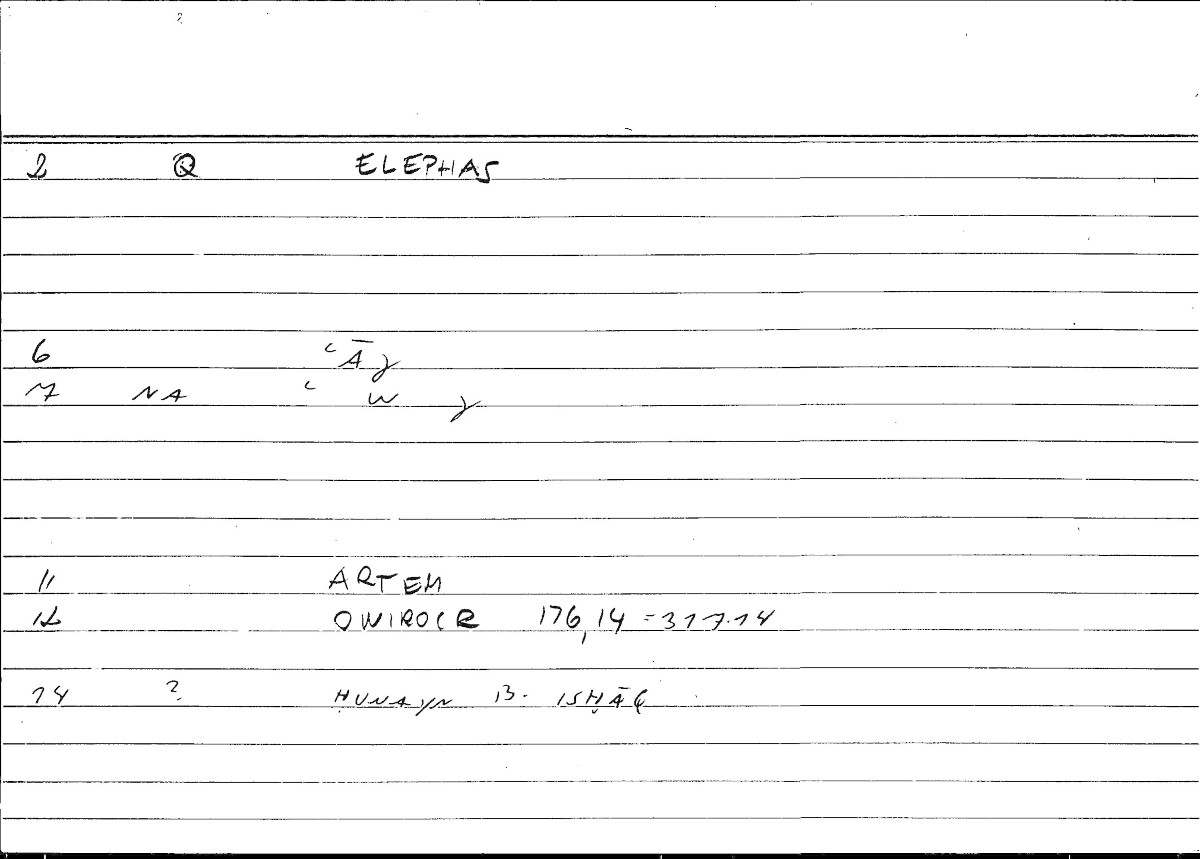 2 Q ELEPHAS
6 ʿĀǧ
7 NA ʿ W ǧ
11 ARTEM
12 ONIROCR 176,14 = 317.14
14 ? ḤUNAYN B. ISḤĀQ